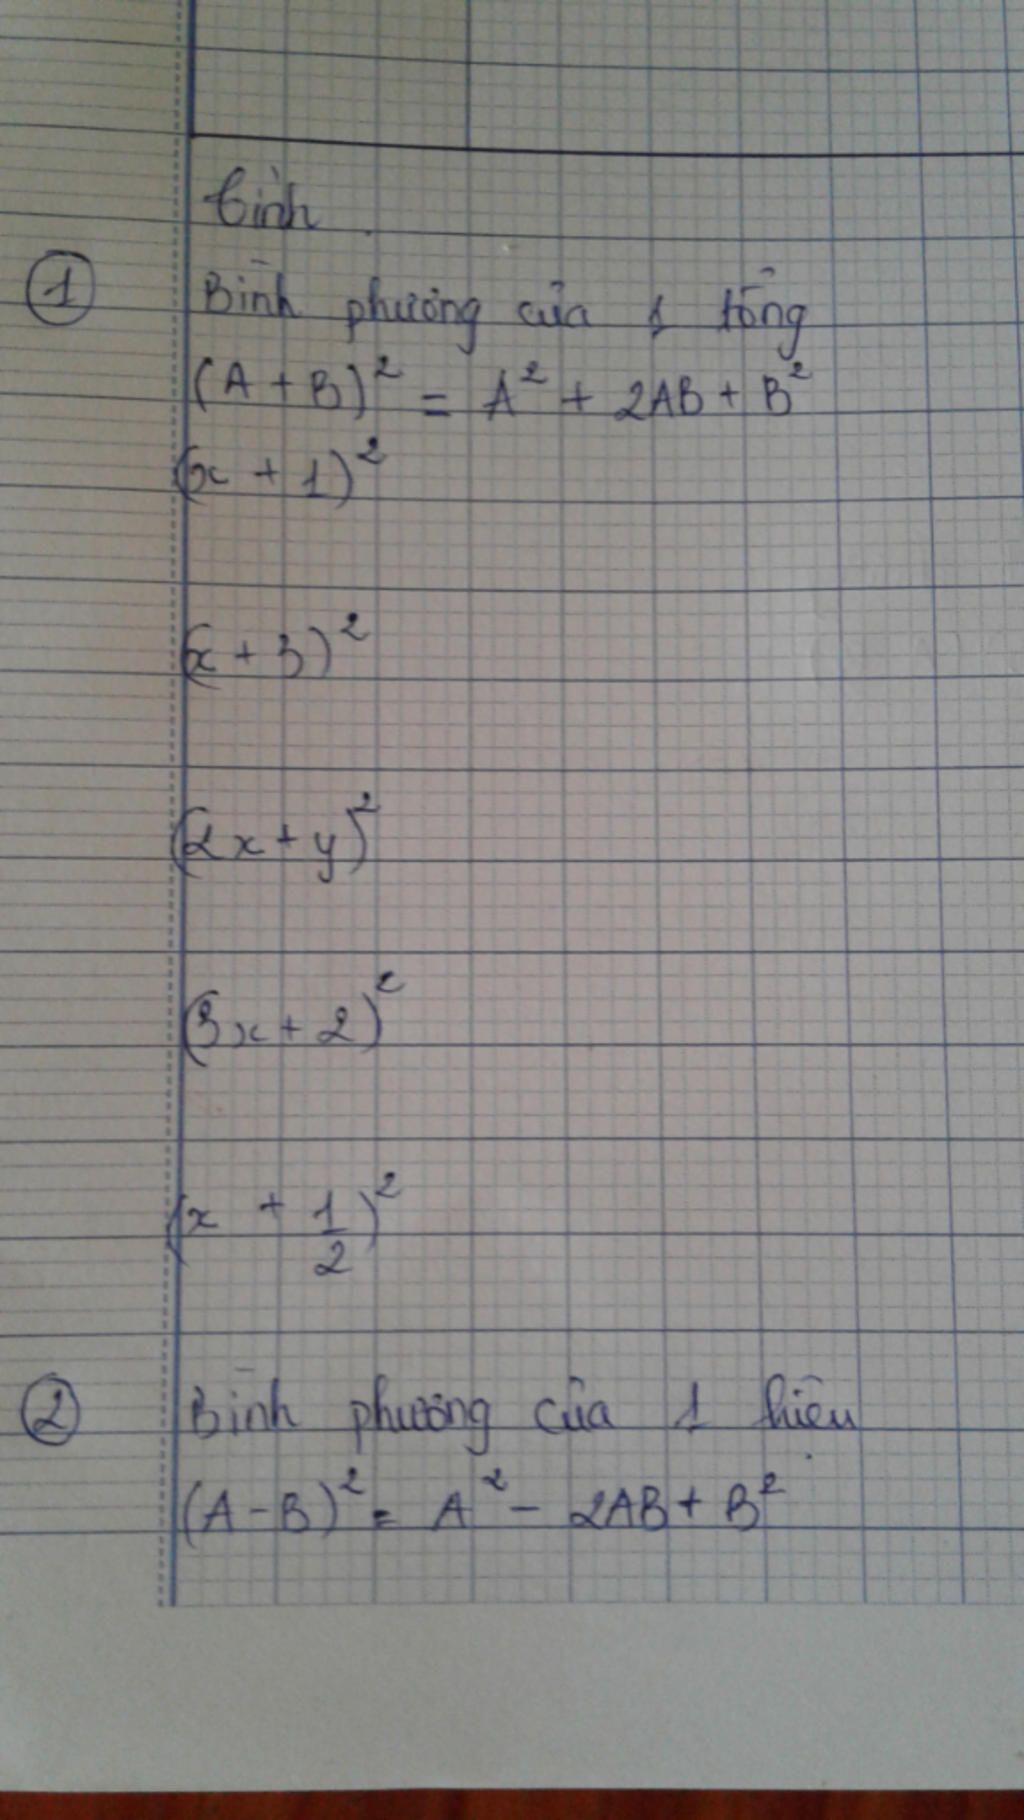 Tính
① Bình phương của 1 tổng
(A + B)² = A² + 2AB + B²
(x + 1)²
(x + 3)²
(2x + y)²
(3x + 2)²
(x + 1/2)²
② Bình phương của 1 hiệu
(A - B)² = A² - 2AB + B²